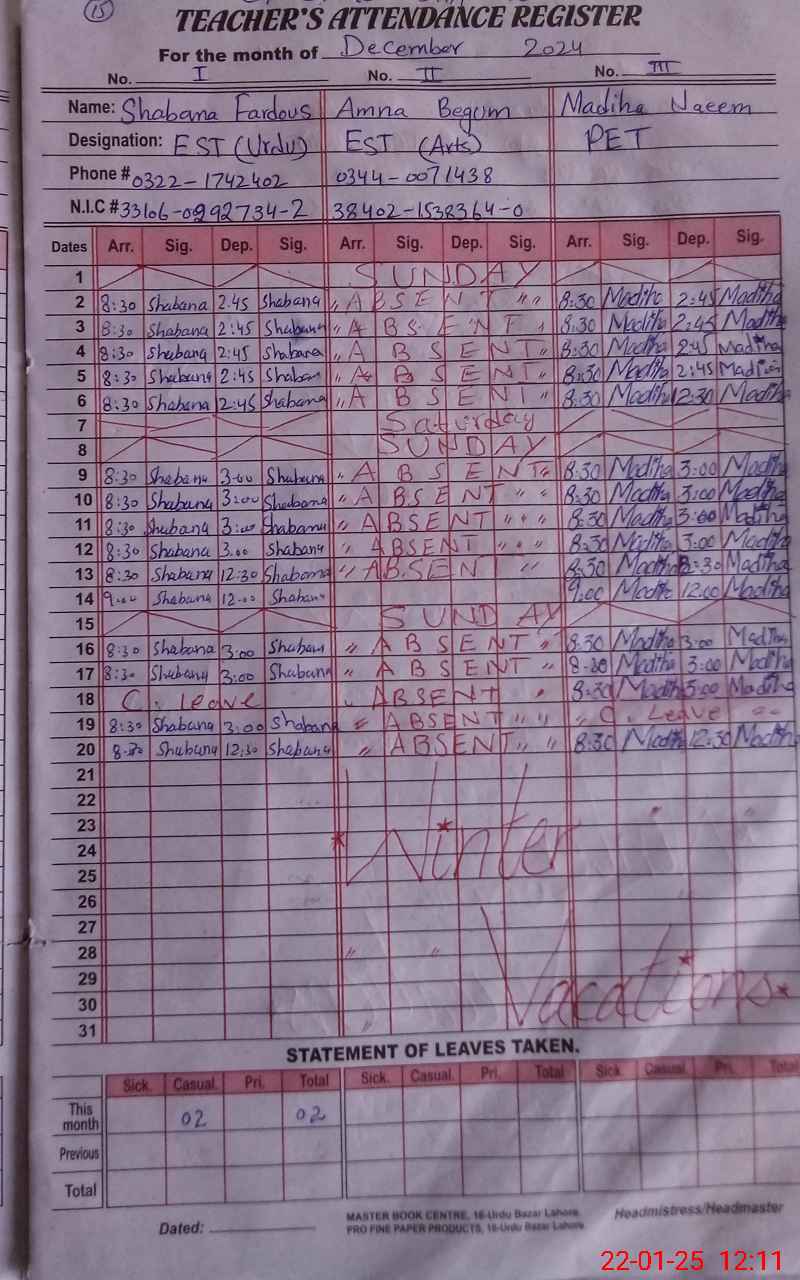 15
TEACHER'S ATTENDANCE REGISTER
For the month of December 2024
No. I No. II No. III
Name: Shabana Fardous Amna Begum Madiha Naeem
Designation: EST (Urdu) EST (Arts) PET
Phone # 0322-1742402 0344-0071438
N.I.C # 33106-0992734-2 38402-1538364-0
Dates Arr. Sig. Dep. Sig. Arr. Sig. Dep. Sig. Arr. Sig. Dep. Sig.
1 SUNDAY
2 8:30 Shabana 2.45 Shabana " ABSENT " " 8:30 Madiha 2:45 Madiha
3 8:30 Shabana 2:45 Shabana " ABSENT " 8:30 Madiha 2:45 Madiha
4 8:30 Shabana 2:45 Shabana " ABSENT " 8:30 Madiha 2:45 Madiha
5 8:30 Shabana 2:45 Shaban " ABSENT " 8:30 Madiha 2:45 Madiha
6 8:30 Shabana 2:45 Shabana " ABSENT " 8:30 Madiha 12:30 Madiha
7 Saturday
8 SUNDAY
9 8:30 Shabana 3:00 Shabana " ABSENT " 8:30 Madiha 3:00 Madiha
10 8:30 Shabana 3:00 Shabana " ABSENT " " 8:30 Madiha 3:00 Madiha
11 8:30 Shabana 3:00 Shabana " ABSENT " " " 8:30 Madiha 3:00 Madiha
12 8:30 Shabana 3.00 Shabana " ABSENT " " " 8:30 Madiha 3:00 Madiha
13 8:30 Shabana 12:30 Shabana " ABSENT " 8:30 Madiha :30 Madiha
14 9:00 Shabana 12:00 Shabana 9:00 Madiha 12:00 Madiha
15 SUNDAY
16 8:30 Shabana 3:00 Shabana " ABSENT " 8:30 Madiha 3:00 Madiha
17 8:30 Shabana 3:00 Shabana " ABSENT " 8:30 Madiha 3:00 Madiha
18 C. leave " ABSENT " 8:30 Madiha 3:00 Madiha
19 8:30 Shabana 3:00 Shabana " ABSENT " " " C. Leave "
20 8:30 Shabana 12:30 Shabana " ABSENT " " 8:30 Madiha 12:30 Madiha
21
22
23
24 Winter
25
26
27
28 " "
29
30 Vacations
31
STATEMENT OF LEAVES TAKEN.
Sick. Casual. Pri. Total Sick. Casual. Pri. Total Sick Casual. Pri. Total
This month 02 02
Previous
Total
Dated: MASTER BOOK CENTRE, 16-Urdu Bazar Lahore. Headmistress/Headmaster
PRO FINE PAPER PRODUCTS, 16-Urdu Bazar Lahore.
22-01-25 12:11